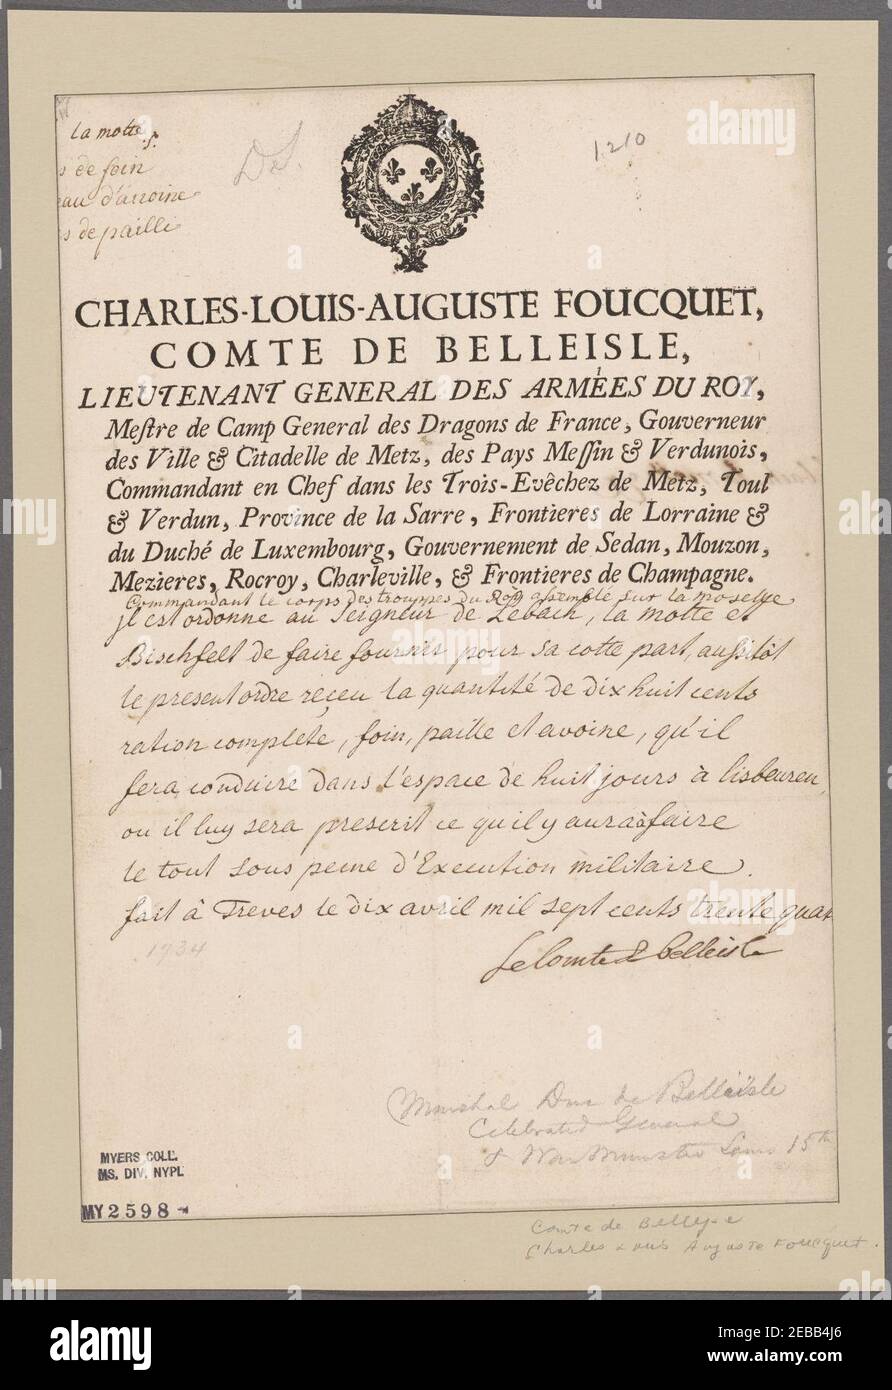 la motte
de foin
d'avoine
de paille
DS.
1210
CHARLES-LOUIS-AUGUSTE FOUCQUET,
COMTE DE BELLEISLE,
LIEUTENANT GENERAL DES ARMÉES DU ROY,
Mestre de Camp General des Dragons de France, Gouverneur
des Ville & Citadelle de Metz, des Pays Messin & Verdunois,
Commandant en Chef dans les Trois-Evêchez de Metz, Toul
& Verdun, Province de la Sarre, Frontieres de Lorraine &
du Duché de Luxembourg, Gouvernement de Sedan, Mouzon,
Mezieres, Rocroy, Charleville, & Frontieres de Champagne.
Commandant le corps des trouppes du Roy assemblé sur la moselle
jl est ordonné au Seigneur de Lebach, la motte et
Bischfelt de faire fournir pour sa cotte part, aussitôt
le present ordre reçeu la quantité de dix huit cents
ration complete, foin, paille et avoine, qu'il
fera conduire dans l'espace de huit jours à lisbeuren,
ou il luy sera prescrit ce qu'il y aura à faire
le tout sous peine d'Execution militaire.
fait à Treves le dix avril mil sept cents trente quat
1734
Le Comte De belleisle
Marshal Duc de Belleisle
Celebrated General
& War Minister Louis 15th
MYERS COLL.
MS. DIV. NYPL
MY 2598
Comte de Belle
Charles Louis Auguste Foucquet.
alamy
Image ID: 2EBB4J6
www.alamy.com